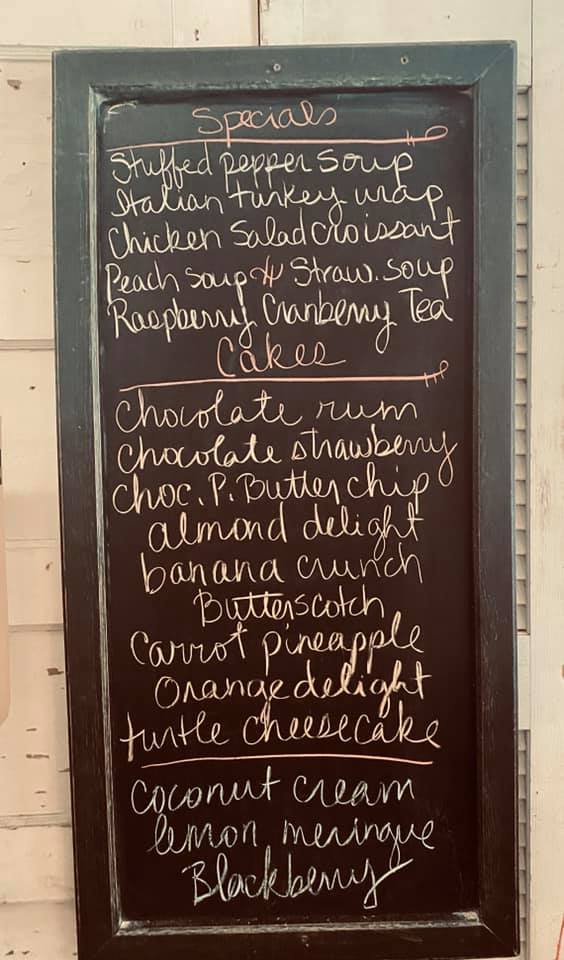 Specials
Stuffed pepper soup
Italian turkey wrap
Chicken Salad Croissant
Peach soup & Straw. soup
Raspberry Cranberry Tea
Cakes
Chocolate rum
Chocolate strawberry
Choc. P. Butter chip
almond delight
banana crunch
Butterscotch
Carrot pineapple
Orange delight
turtle cheesecake
Coconut cream
lemon meringue
Blackberry